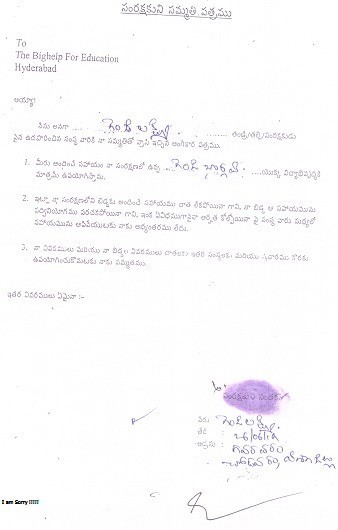 సంరక్షకుని సమ్మతి పత్రము
To
The Bighelp For Education
Hyderabad
అయ్యా!
నేను అనగా గెంజి లక్ష్మి తండ్రి/తల్లి/సంరక్షకుడు
పైన ఉదహరించిన సంస్థ వారికి నా సమ్మతితో వ్రాసి ఇచ్చిన అంగీకార పత్రము.
1. మీరు అందించే సహాయం నా సంరక్షణలో ఉన్న గెంజి భార్గవి యొక్క విద్యాభివృద్ధికి
మాత్రమే ఉపయోగిస్తాము.
2. ఇట్లా నా సంరక్షణలోని బిడ్డకు అందించే సహాయము చాత లేకపోయినా గాని, నా బిడ్డ ఆ సహాయమును
సద్వినియోగము పరచకపోయినా గాని, ఇంక ఏవిధముగానైనా అర్హత కోల్పోయినా పై సంస్థ వారు మధ్యలో
సహాయమును ఆపివేయుటకు నాకు అభ్యంతరము లేదు.
3. నా వివరములు మరియు నా బిడ్డ వివరములు దాతలకు ఇతర సంస్థలకు మరియు ప్రచారము కొరకు
ఉపయోగించుకొనుటకు నాకు సమ్మతము.
ఇతర వివరములు ఏమైనా :-
సంరక్షకుని సంతకం
పేరు గెంజి లక్ష్మి
తేదీ : 26/06/12
అడ్రసు : గవరవరం
చోడవరం, విశాఖజిల్లా
I am Sorry !!!!!